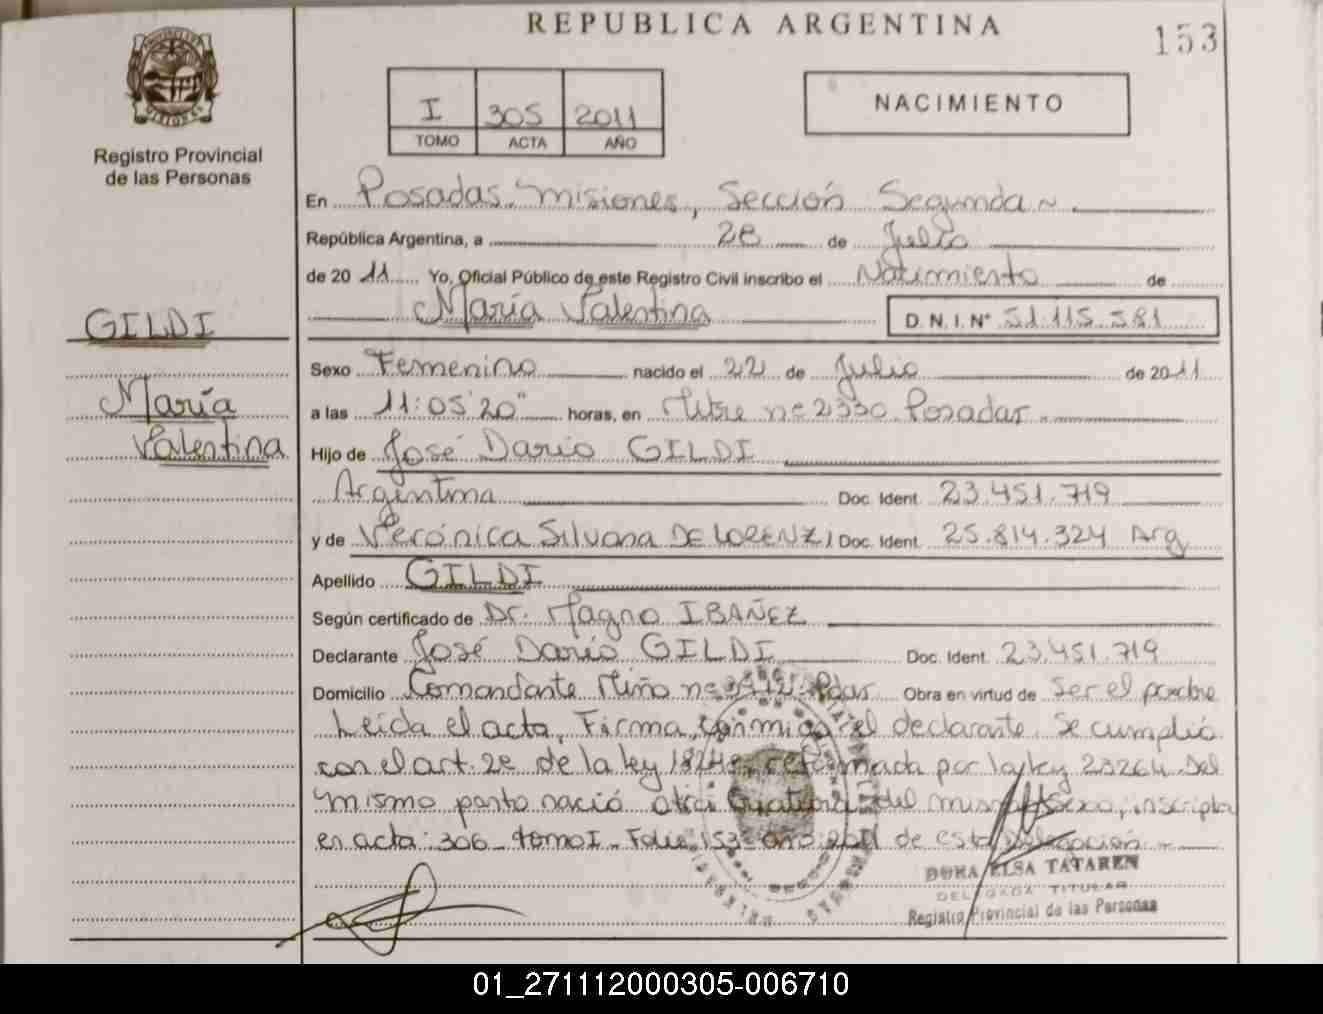 REPUBLICA ARGENTINA
153
Registro Provincial
de las Personas
I 305 2011
TOMO ACTA AÑO
NACIMIENTO
En Posadas. Misiones, Sección Segunda ~
República Argentina, a 28 de Julio
de 2011 Yo, Oficial Público de este Registro Civil inscribo el Nacimiento de
María Valentina D.N.I. N° 51.115.581
GILDI
María
Valentina
Sexo Femenino nacido el 22 de Julio de 2011
a las 11:05'20" horas, en Mitre nº 2330 Posadas.
Hijo de José Darío GILDI
Argentina Doc. Ident. 23.451.719
y de Verónica Silvana DE LORENZI Doc. Ident. 25.814.324 Arg
Apellido GILDI
Según certificado de Dr. Magno IBAÑEZ
Declarante José Darío GILDI Doc. Ident. 23.451.719
Domicilio Comandante Miño nº Pdas Obra en virtud de Ser el padre
Leída el acta, Firma, conmigo el declarante. Se cumplió
con el art. 2º de la ley reformada por la ley 23264. Del
mismo parto nació otra del mismo sexo, inscripta
en acta: 306 - tomo I - Folio 153 - año 2011 de esta Delegación ~
DORA ELSA TATAREN
DELEGADA TITULAR
Registro Provincial de las Personas
01_271112000305-006710